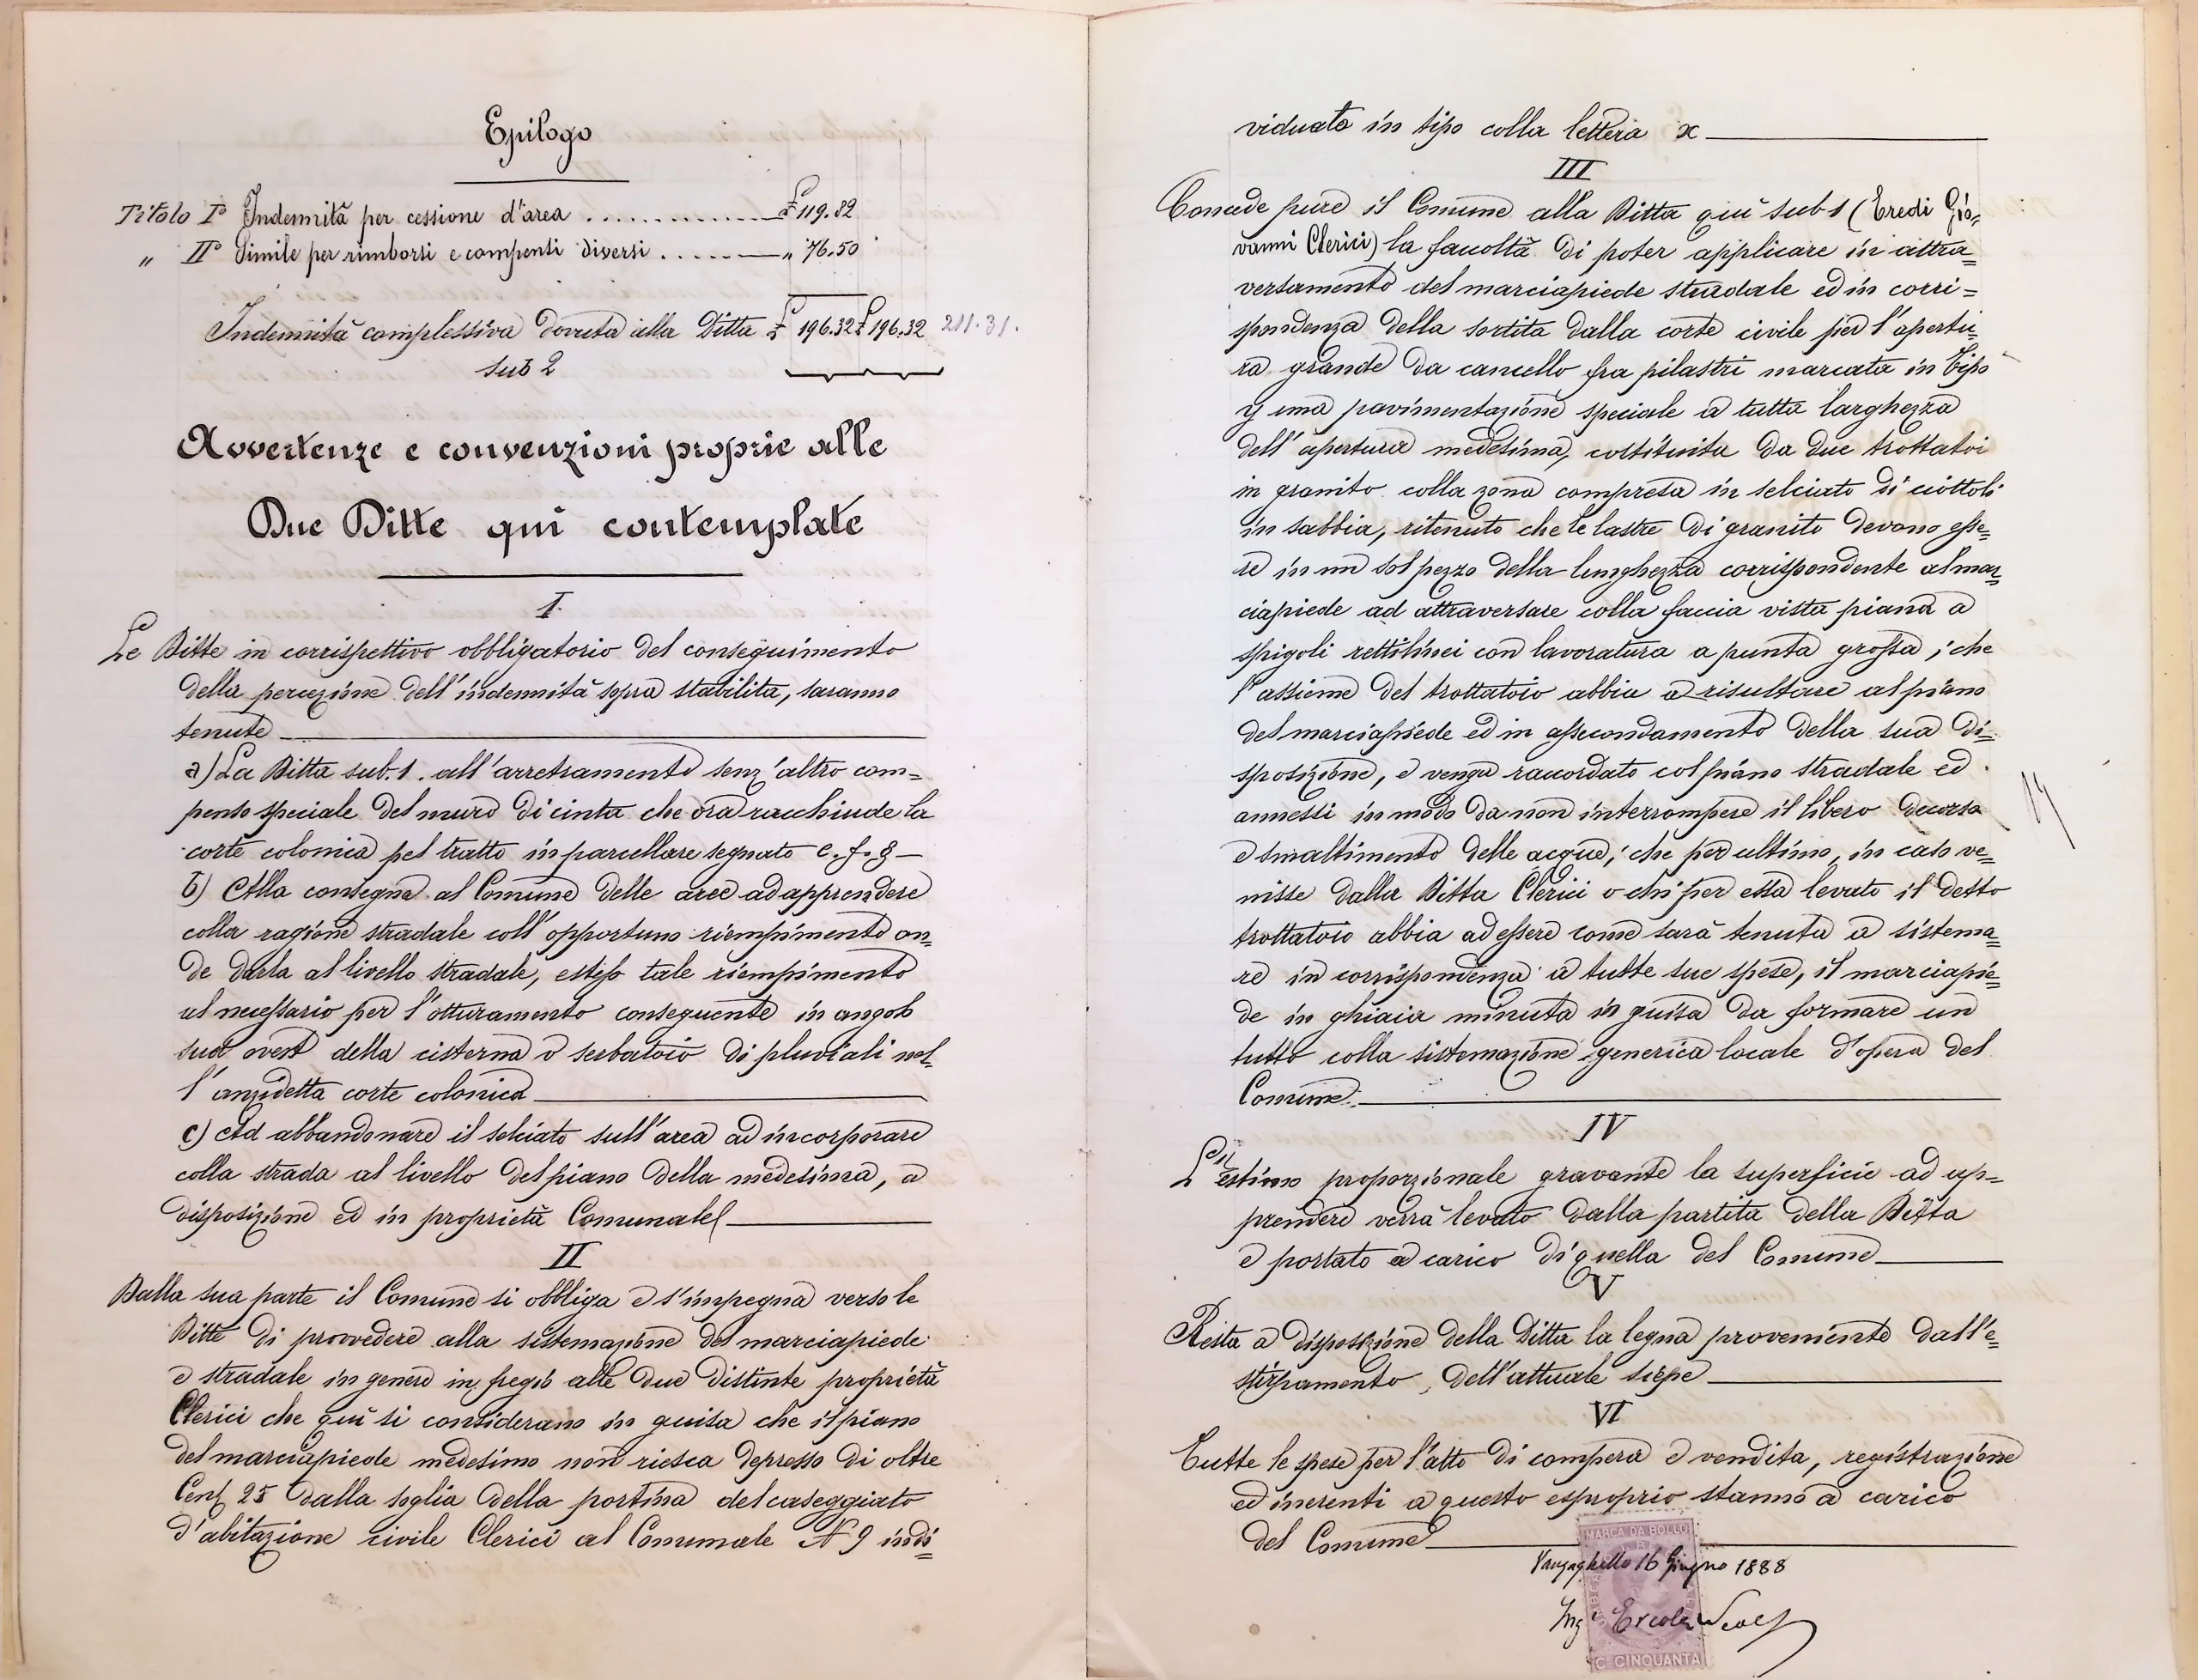 Epilogo
Titolo I° Indennità per cessione d'area ............. £ 119.82
„ II° Simile per rimborsi e compensi diversi ...... „ 76.50
Indennità complessiva dovuta alla Ditta £ 196.32 £ 196.32 211.31.
sub 2
Avvertenze e convenzioni proprie alle
Due Ditte qui contemplate
I.
Le Ditte in corrispettivo obbligatorio del conseguimento
della percezione dell'indennità sopra stabilita, saranno
tenute
a) La Ditta sub. 1. all'arretramento senz'altro com=
penso speciale del muro di cinta che ora racchiude la
corte colonica pel tratto in parcellare segnato e. f. g
b) Alla consegna al Comune delle aree ad apprendere
colla ragione stradale coll'opportuno riempimento on=
de darla al livello stradale, esteso tale riempimento
al necessario per l'otturamento conseguente in angolo
sud ovest della cisterna o serbatoio di pluviali nel=
l'anzidetta corte colonica
c) Ad abbandonare il selciato sull'area ad incorporare
colla strada al livello del piano della medesima, a
disposizione ed in proprietà Comunale
II
Dalla sua parte il Comune si obbliga e s'impegna verso le
Ditte di provvedere alla sistemazione del marciapiede
e stradale in genere in fregio alle due distinte proprietà
Clerici che qui si considerano in guisa che il piano
del marciapiede medesimo non riesca depresso di oltre
Cent 25 dalla soglia della portina del caseggiato
d'abitazione civile Clerici al Comunale N 9 indi=
viduato in tipo colla lettera x
III
Concede pure il Comune alla Ditta qui sub 1 (Eredi Gio=
vanni Clerici) la facoltà di poter applicare in attra=
versamento del marciapiede stradale ed in corri=
spondenza della sortita dalla corte civile per l'apertu=
ra grande da cancello fra pilastri marcata in Tipo
y una pavimentazione speciale a tutta larghezza
dell'apertura medesima, costituita da due trottatoi
in granito colla zona compresa in selciato di ciottoli
in sabbia, ritenuto che le lastre di granito devono esse=
re in un sol pezzo della lunghezza corrispondente al mar=
ciapiede ad attraversare colla faccia vista piana a
spigoli rettilinei con lavoratura a punta grossa; che
l'assieme del trottatoio abbia a risultare al piano
del marciapiede ed in assecondamento della sua di=
sposizione, e venga raccordato col piano stradale ed
annessi in modo da non interrompere il libero decorso
e smaltimento delle acque; che per ultimo, in caso ve=
nisse dalla Ditta Clerici o chi per essa levato il detto
trottatoio abbia ad essere come sarà tenuta a sistema=
re in corrispondenza a tutte sue spese, il marciapie=
de in ghiaia minuta in guisa da formare un
tutto colla sistemazione generica locale d'opera del
Comune.
IV
L'estimo proporzionale gravante la superficie ad ap=
prendere verrà levato dalla partita della Ditta
e portato a carico di quella del Comune
V
Resta a disposizione della Ditta la legna proveniente dall'e=
stirpamento dell'attuale siepe
VI
Tutte le spese per l'atto di compera e vendita, registrazione
ed inerenti a questo esproprio stanno a carico
del Comune
MARCA DA BOLLO
Vanzaghello 16 Giugno 1888
Ing Ercole
C. CINQUANTA